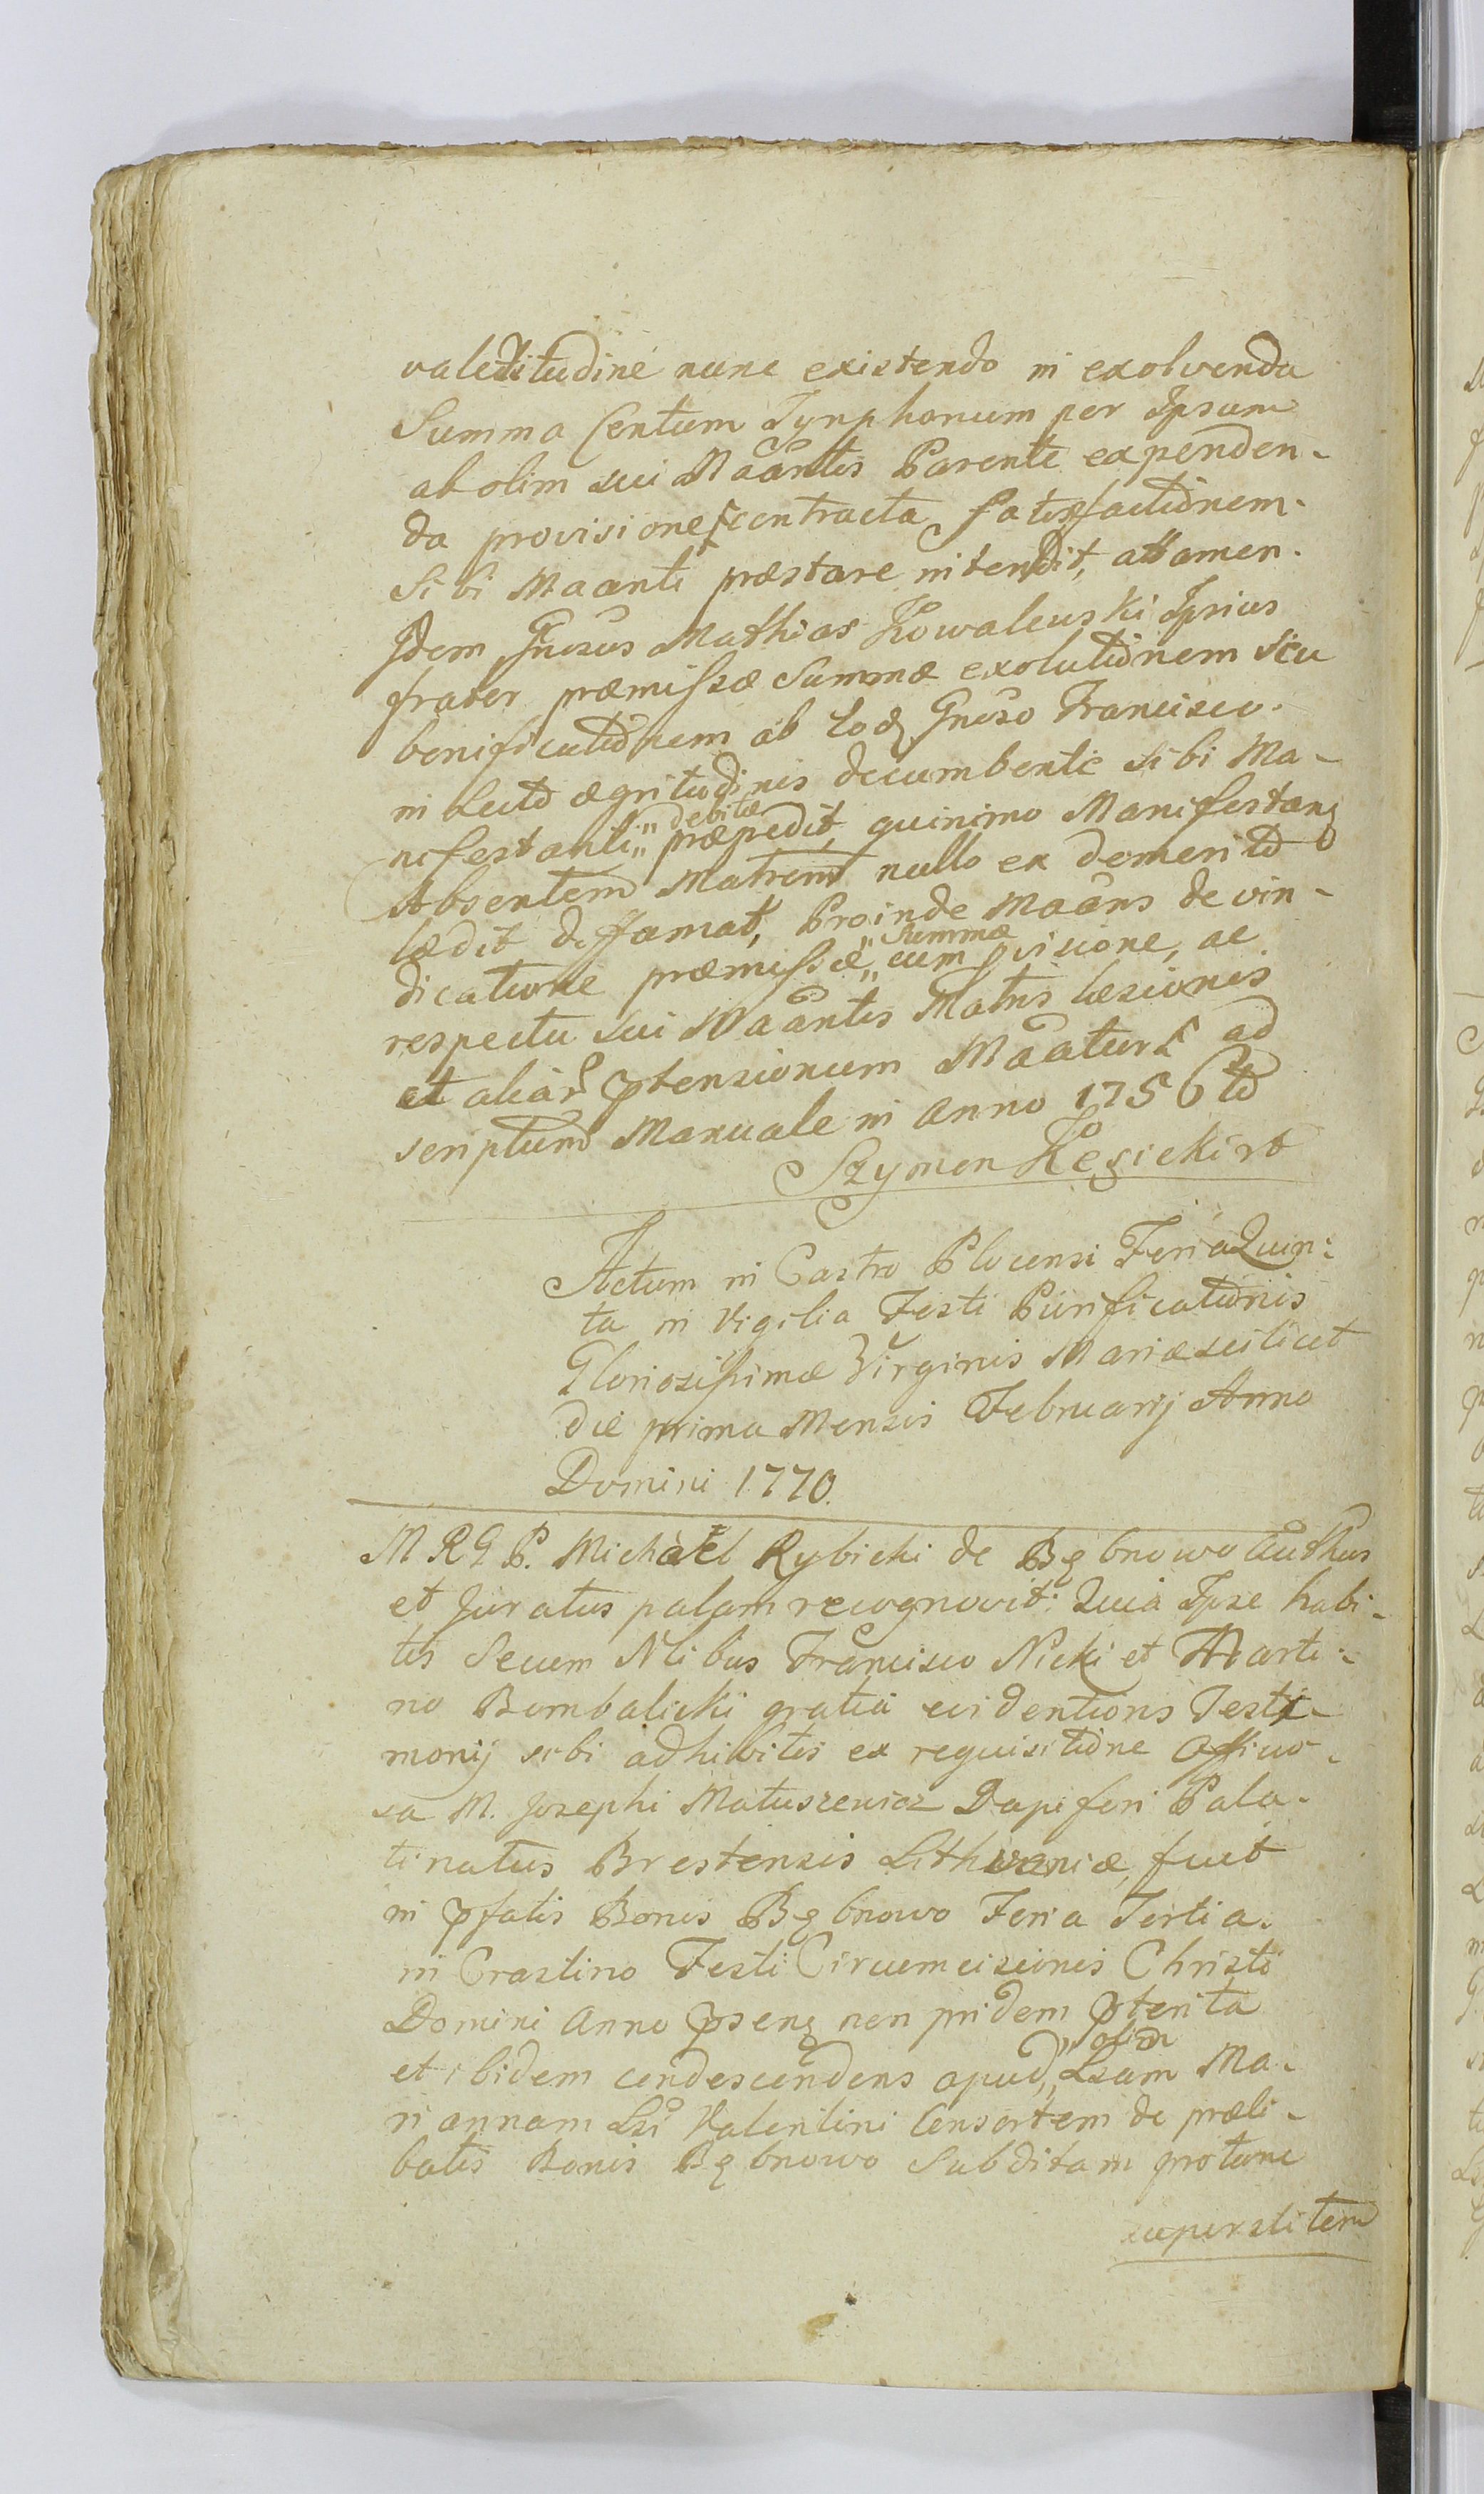 valetitudine nunc existendo in exolvenda
Summa Centum Tynphonum per Ipsum
ab olim sui Maantis Parente expenden-
da provisione contracta satisfactionem
sibi Maanti præstare intendit, attamen
Idem Gnosus Mathias Kowalewski Ipsius
frater præmissæ Summæ exolutionem seu
bonificationem ab Eodq Gnoso Francisco
in Lecto ægritudinis decumbente sibi Ma-
nifestanti „debitæ„ præpedit, quinimo Manifestanq
Absentem Matrem nullo ex demerito
lædit diffamat, Proinde Maans de vin-
dicatione præmissæ „Summæ„ cum pvisione, ac
respectu sui Maantis Matris læsionis
et aliar ptensionum Maatur ad
scriptum Manuale in anno 1756to
Szymon Kęsicki
Actum in Castro Plocensi Feria Quin-
ta in Vigilia Festi Purificationis
Gloriosissimæ Virginis Mariæ scilicet
die prima Mensis Februarij Anno
Domini 1770.
M R G P. Michael Rybicki de Bębnowo Authus
et Juratus palam recognovit: Quia Ipse habi-
tis Secum Nlibus Francisco Nicki et Marti-
no Bombalicki gratia evidentioris Testi-
monij sibi adhibitis ex requisitione Officio-
sa M. Josephi Matuszewicz Dapiferi Pala-
tinatus Brestensis Lithvaniæ, fuit
in pfatis Bonis Bębnowo Feria Tertia
in Crastino Festi Circumcisionis Christi
Domini Anno psenq non pridem pterita
et ibidem condescendens apud „olim„ Lsam Ma-
riannam Lsi Valentini Consortem de præli-
batis Bonis Bębnowo Subditam protunc
superstitem